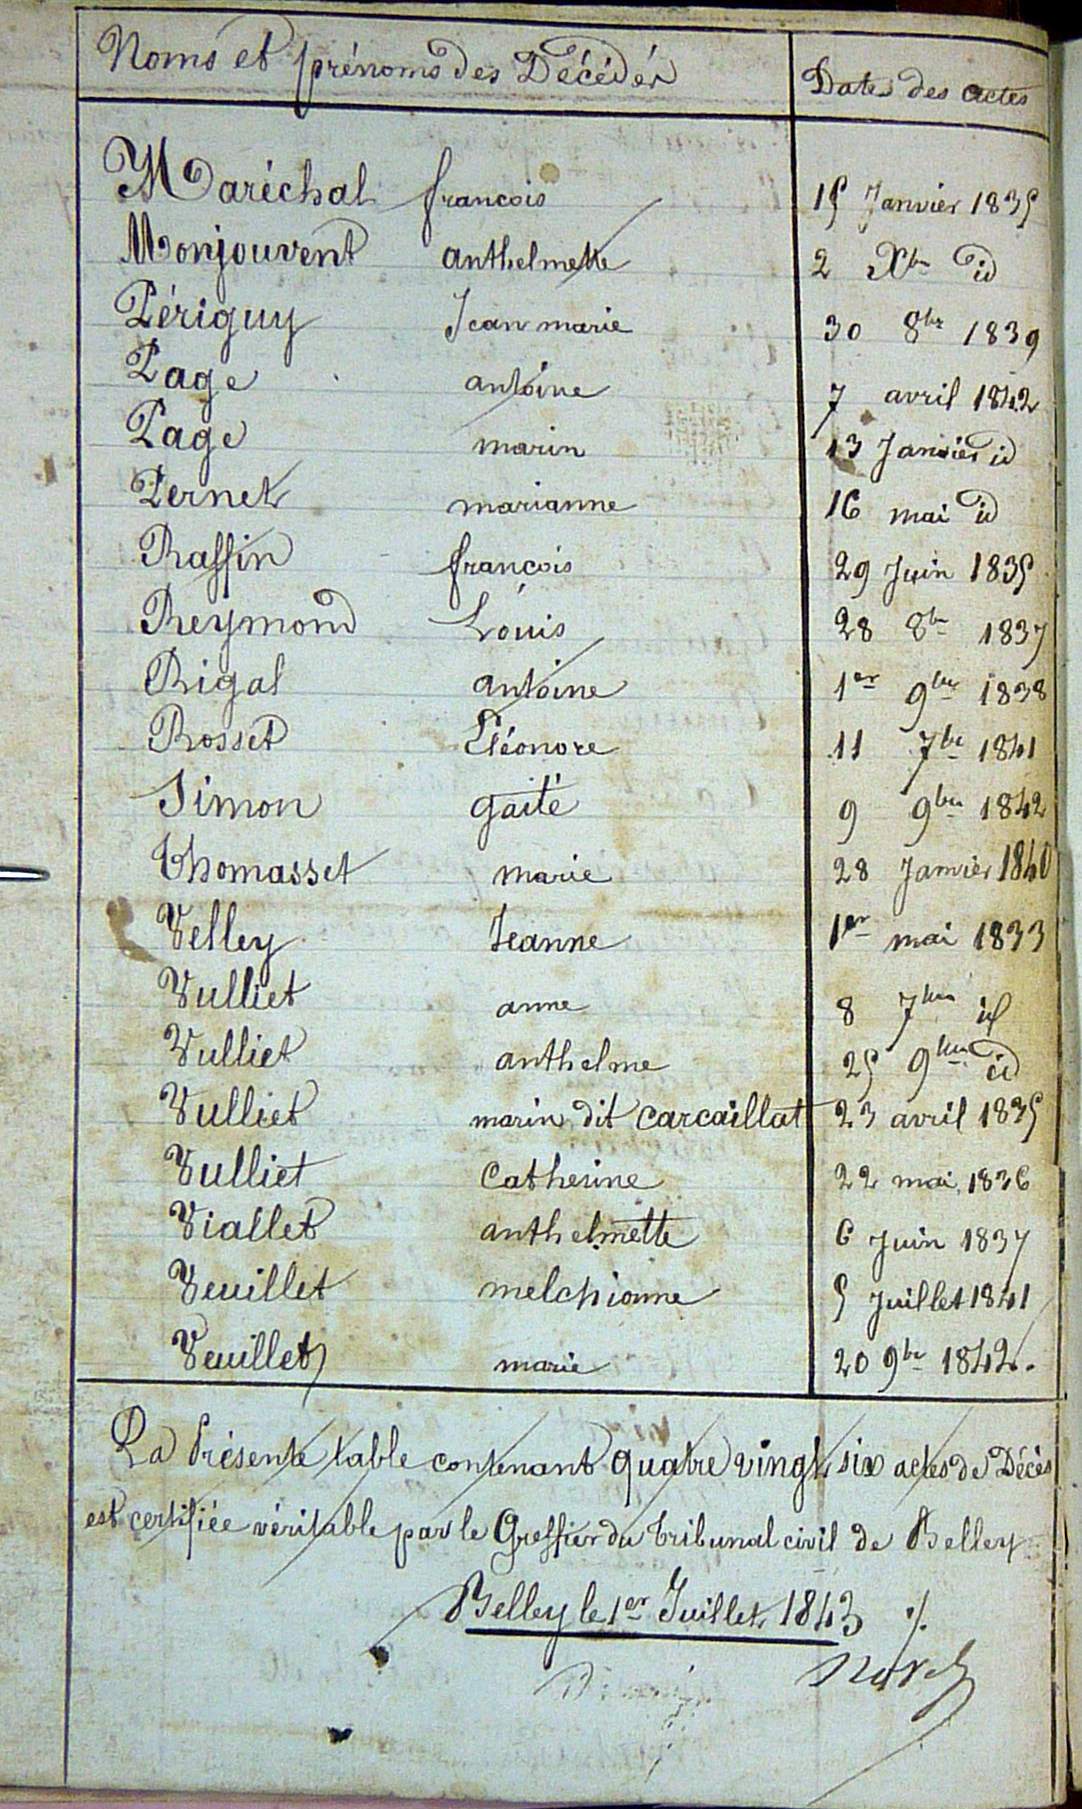 Noms et prénoms des Décédés Dates des actes
Maréchal francois 15 Janvier 1835
Monjouvent anthelmette 2 Xbre id
Périguy Jean marie 30 8bre 1839
Page antoine 7 avril 1842
Page marin 13 Janvier id
Pernet marianne 16 mai id
Raffin francois 29 Juin 1835
Reymond Louis 28 8bre 1837
Rigal antoine 1er 9bre 1838
Rosset Eléonore 11 7bre 1841
Simon gaité 9 9bre 1842
Thomasset marie 28 Janvier 1840
Velley Jeanne 1er mai 1833
Vulliet anne 8 7bre id
Vulliet anthelme 25 9bre id
Vulliet marin dit Carcaillat 23 avril 1835
Vulliet Catherine 22 mai 1836
Viallet anthelmette 6 Juin 1837
Veuillet melchionne 5 Juillet 1841
Veuillet marie 20 9bre 1842.
La Présente table contenant quatre vingt six actes de Décès
est certifiée véritable par le Greffier du tribunal civil de Belley
Belley le 1er Juillet 1843 ·/.